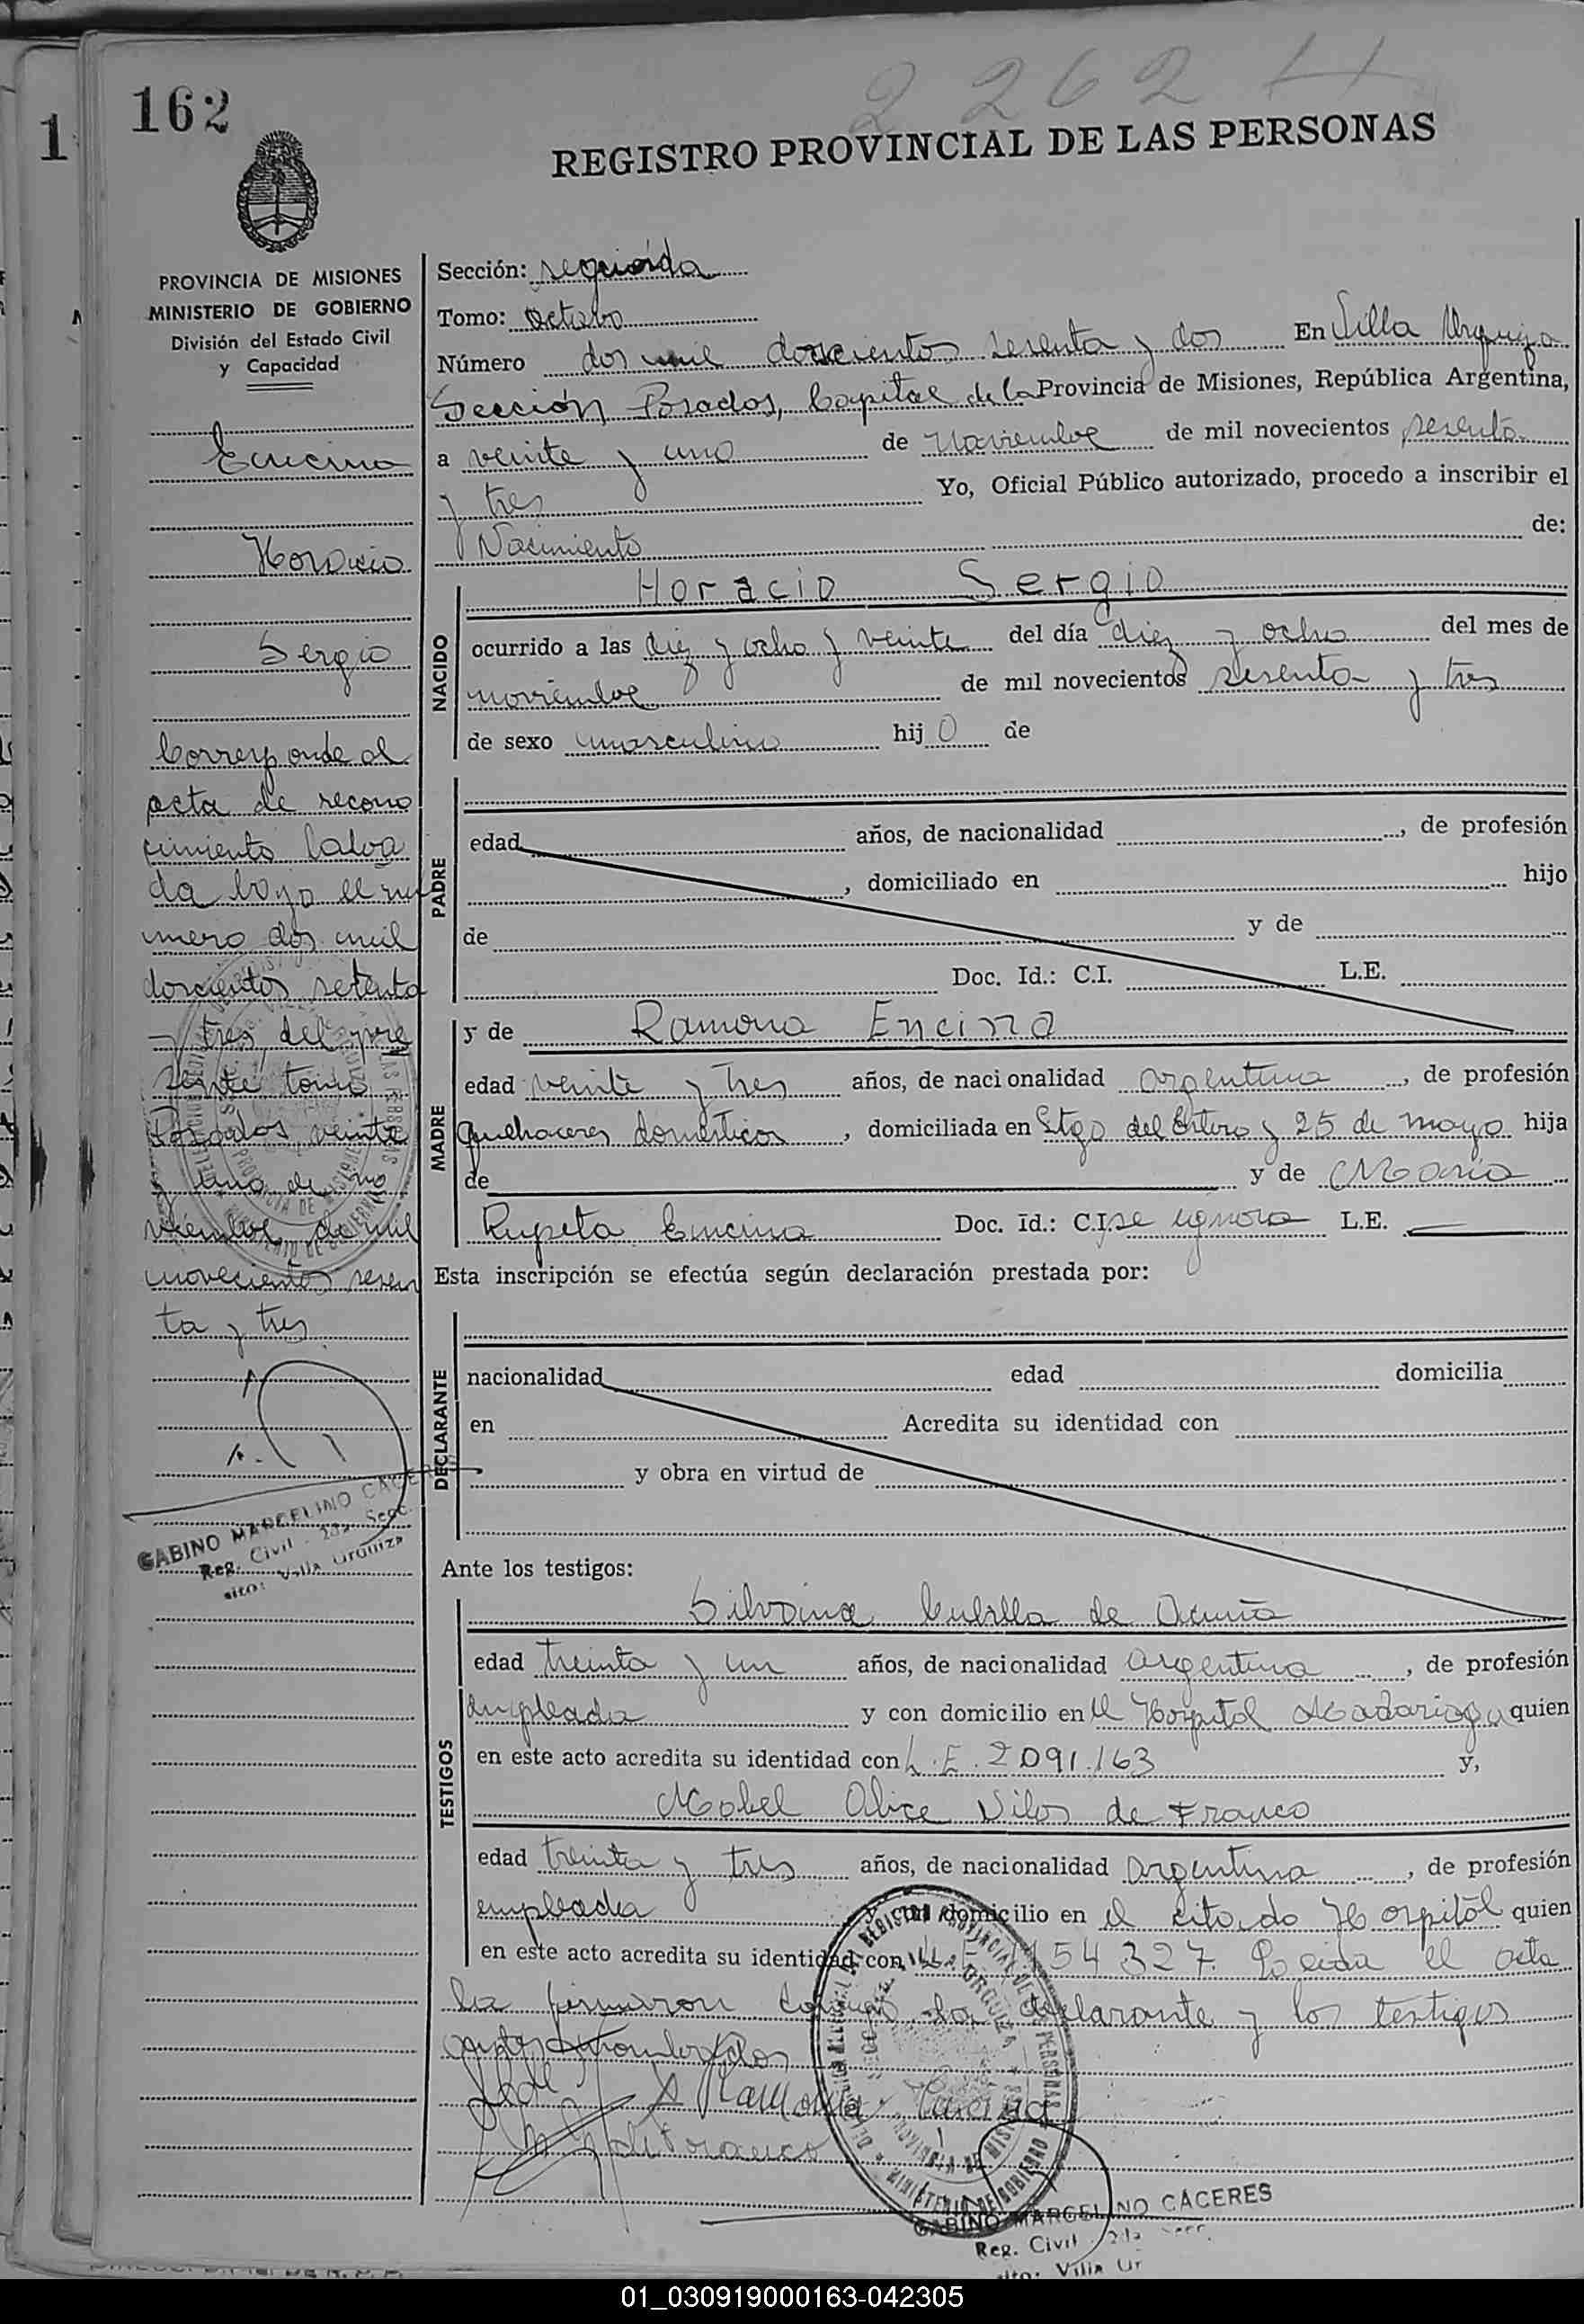 2262 H
162
1
REGISTRO PROVINCIAL DE LAS PERSONAS
PROVINCIA DE MISIONES
MINISTERIO DE GOBIERNO
División del Estado Civil
y Capacidad
Encina
Horacio
Sergio
Corresponde al
acta de recono
cimiento labra
da bajo el nu
mero dos mil
doscientos setenta
y tres del pre
sente tomo
Posadas veinte
y uno de no
viembre de mil
novecientos sesen
ta y tres
GABINO MARCELINO CACERES
Reg. Civil 2da Secc.
sito: Villa Urquiza
Sección: segunda
Tomo: octavo
Número dos mil doscientos sesenta y dos En Villa Urquiza
Sección Posadas, Capital de la Provincia de Misiones, República Argentina,
a veinte y uno de Noviembre de mil novecientos sesenta
y tres Yo, Oficial Público autorizado, procedo a inscribir el
Nacimiento de:
NACIDO
Horacio Sergio
ocurrido a las diez y ocho y veinte del día diez y ocho del mes de
noviembre de mil novecientos sesenta y tres
de sexo masculino hijo de
PADRE
edad años, de nacionalidad , de profesión
, domiciliado en hijo
de y de
Doc. Id.: C.I. L.E.
MADRE
y de Ramona Encina
edad veinte y tres años, de nacionalidad argentina , de profesión
quehaceres domesticos , domiciliada en Stgo del Estero y 25 de mayo hija
de y de Maria
Rupeta Encina Doc. Id.: C.I. se ignora L.E.
Esta inscripción se efectúa según declaración prestada por:
DECLARANTE
nacionalidad edad domicilia
en Acredita su identidad con
y obra en virtud de
Ante los testigos:
TESTIGOS
Silvoina Cubilla de Acuña
edad treinta y un años, de nacionalidad argentina , de profesión
empleada y con domicilio en el Hospital Madariaga quien
en este acto acredita su identidad con L.E. 2091.163 y,
Mabel Alice Silos de Franco
edad treinta y tres años, de nacionalidad argentina , de profesión
empleada y con domicilio en el citado Hospital quien
en este acto acredita su identidad con 154327. Leida el acta
la firmaron conmigo la declarante y los testigos
antes nombrados
Ramona Encina
de Franco
GABINO MARCELINO CACERES
Reg. Civil 2da Secc.
sito: Villa Ur
01_030919000163-042305